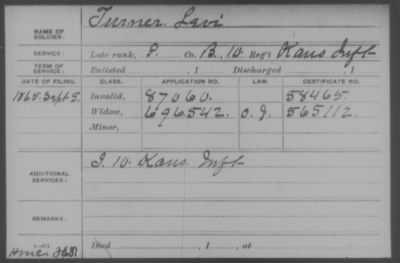 NAME OF SOLDIER: Turner Levi
SERVICE: Late rank, P. Co. B, 10 Reg't Kans Inft
TERM OF SERVICE: Enlisted , 1 Discharged , 1
DATE OF FILING. CLASS. APPLICATION NO. LAW. CERTIFICATE NO.
1865. Sept 5. Invalid, 87060. 58465
Widow, 696542. 565112.
Minor,
ADDITIONAL SERVICES: I. 10. Kans. Inft
REMARKS:
Died , 1 , at